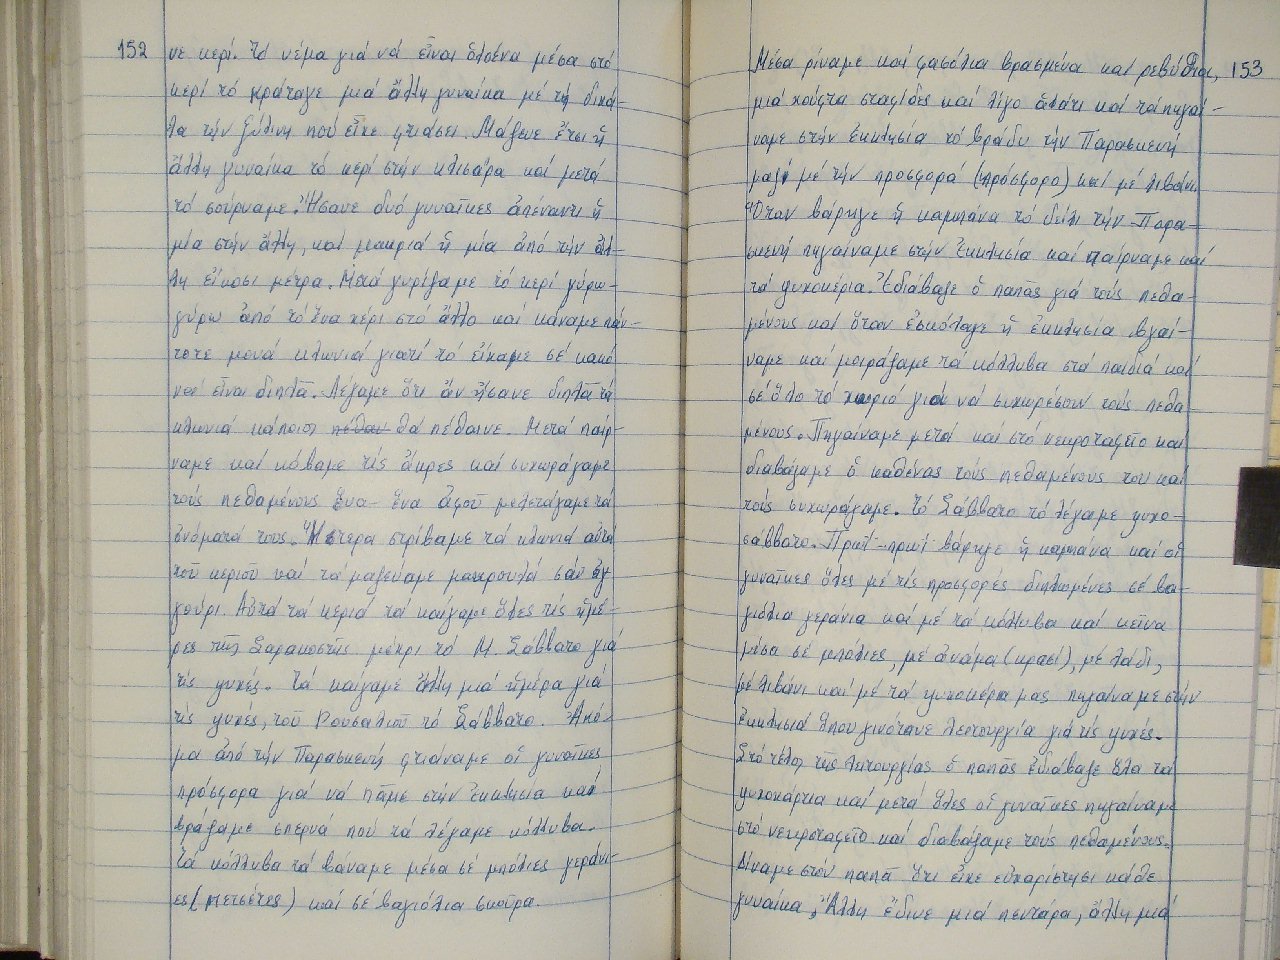 152
νε κερί. Τό νέμα γιά νά εἶναι ὁλοένα μέσα στό
κερί τό κράταγε μιά ἄλλη γυναίκα μέ τή δικά-
λα τήν ξύλινη πού εἶχε φτιάσει. Μάζευε ἔτσι ἡ
ἄλλη γυναίκα τό κερί στήν κλισάρα καί μετά
τό σούρναμε. Ἤσανε δυό γυναῖκες ἀπέναντι ἡ
μία στήν ἄλλη, καί μακριά ἡ μία ἀπό τήν ἄλ-
λη εἴκοσι μέτρα. Μετά γυρίζαμε τό κερί γύρω-
γύρω ἀπό τό ἕνα χέρι στό ἄλλο καί κάναμε πάν-
τοτε μονά κλωνιά γιατί τό εἴχαμε σέ κακό
νά εἶναι διπλᾶ. Λέγαμε ὅτι ἄν ἤσανε διπλᾶ τά
κλωνιά κάποιος πέθαν θά πέθαινε. Μετά παίρ-
ναμε καί κόβαμε τίς ἄκρες καί συχωράγαμε
τούς πεθαμένους ἕνα-ἕνα ἀφοῦ μελετάγαμε τά
ὀνόματά τους. Ὕστερα στρίβαμε τά κλωνιά αὐτά
τοῦ κεριοῦ καί τά μαζεύαμε μακρουλά σάν ἀγ
γούρι. Αὐτά τά κεριά τά καίγαμε ὅλες τίς ἡμέ-
ρες τῆς Σαρακοστῆς μέχρι τό Μ. Σάββατο γιά
τίς ψυχές. Τά καίγαμε ἄλλη μιά ἡμέρα γιά
τίς ψυχές, τοῦ Ρουσαλιοῦ τό Σάββατο. Ἀκό-
μα ἀπό τήν Παρασκευή φτιάναμε οἱ γυναῖκες
πρόσφορα γιά νά πᾶμε στήν ἐκκλησία καί
βράζαμε σπερνά πού τά λέγαμε κόλλυβα.
Τά κόλλυβα τά βάναμε μέσα σέ μπόλιες γεράνι-
ες (πετσέτες) καί σέ βαγιόλια σκοῦρα.
153
Μέσα ρίναμε καί φασόλια βρασμένα καί ρεβύθια,
μιά χούφτα σταφίδες καί λίγο ἁλάτι καί τά πηγαί-
ναμε στήν ἐκκλησία τό βράδυ τήν Παρασκευή
μαζί μέ τήν προσφορά (πρόσφορο) καί μέ λιβάνι.
Ὅταν βάρηγε ἡ καμπάνα τό δείλι τήν Παρα-
σκευή πηγαίναμε στήν ἐκκλησία καί παίρναμε καί
τά ψυχοκέρια. Ἐδιάβαζε ὁ παπᾶς γιά τούς πεθα-
μένους καί ὅταν ἐσκόλαγε ἡ ἐκκλησία βγαί-
ναμε καί μοιράζαμε τά κόλλυβα στά παιδιά καί
σέ ὅλο τό χωριό γιά νά συχωρέσουν τούς πεθα-
μένους. Πηγαίναμε μετά καί στό νεκροταφεῖο καί
διαβάζαμε ὁ καθένας τούς πεθαμένους του καί
τούς συχωράγαμε. Τό Σάββατο τό λέγαμε ψυχο-
σάββατο. Πρωΐ-πρωΐ βάρηγε ἡ καμπάνα καί οἱ
γυναῖκες ὅλες μέ τίς προσφορές διπλωμένες σέ βα-
γιόλια γεράνια καί μέ τά κόλλυβα καί κεῖνα
μέσα σέ μπόλιες, μέ ἀνάμα (κρασί), μέ λάδι,
μέ λιβάνι καί μέ τά ψυχοκέρια μας πηγαίναμε στήν
ἐκκλησιά ὅπου γινότανε λειτουργία γιά τίς ψυχές.
Στό τέλος τῆς λειτουργίας ὁ παπᾶς ἐδιάβαζε ὅλα τά
ψυχοχάρτια καί μετά ὅλες οἱ γυναῖκες πηγαίναμε
στό νεκροταφεῖο καί διαβάζαμε τούς πεθαμένους.
Δίναμε στόν παπᾶ ὅτι εἶχε εὐχαρίστηση κάθε
γυναίκα, Ἄλλη ἔδινε μιά πεντάρα, ἄλλη μιά